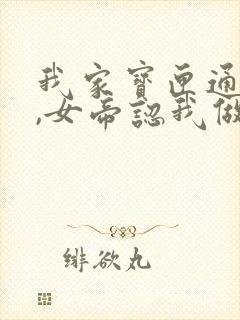 我家寶匣通
,女帝認我做
緋欲丸